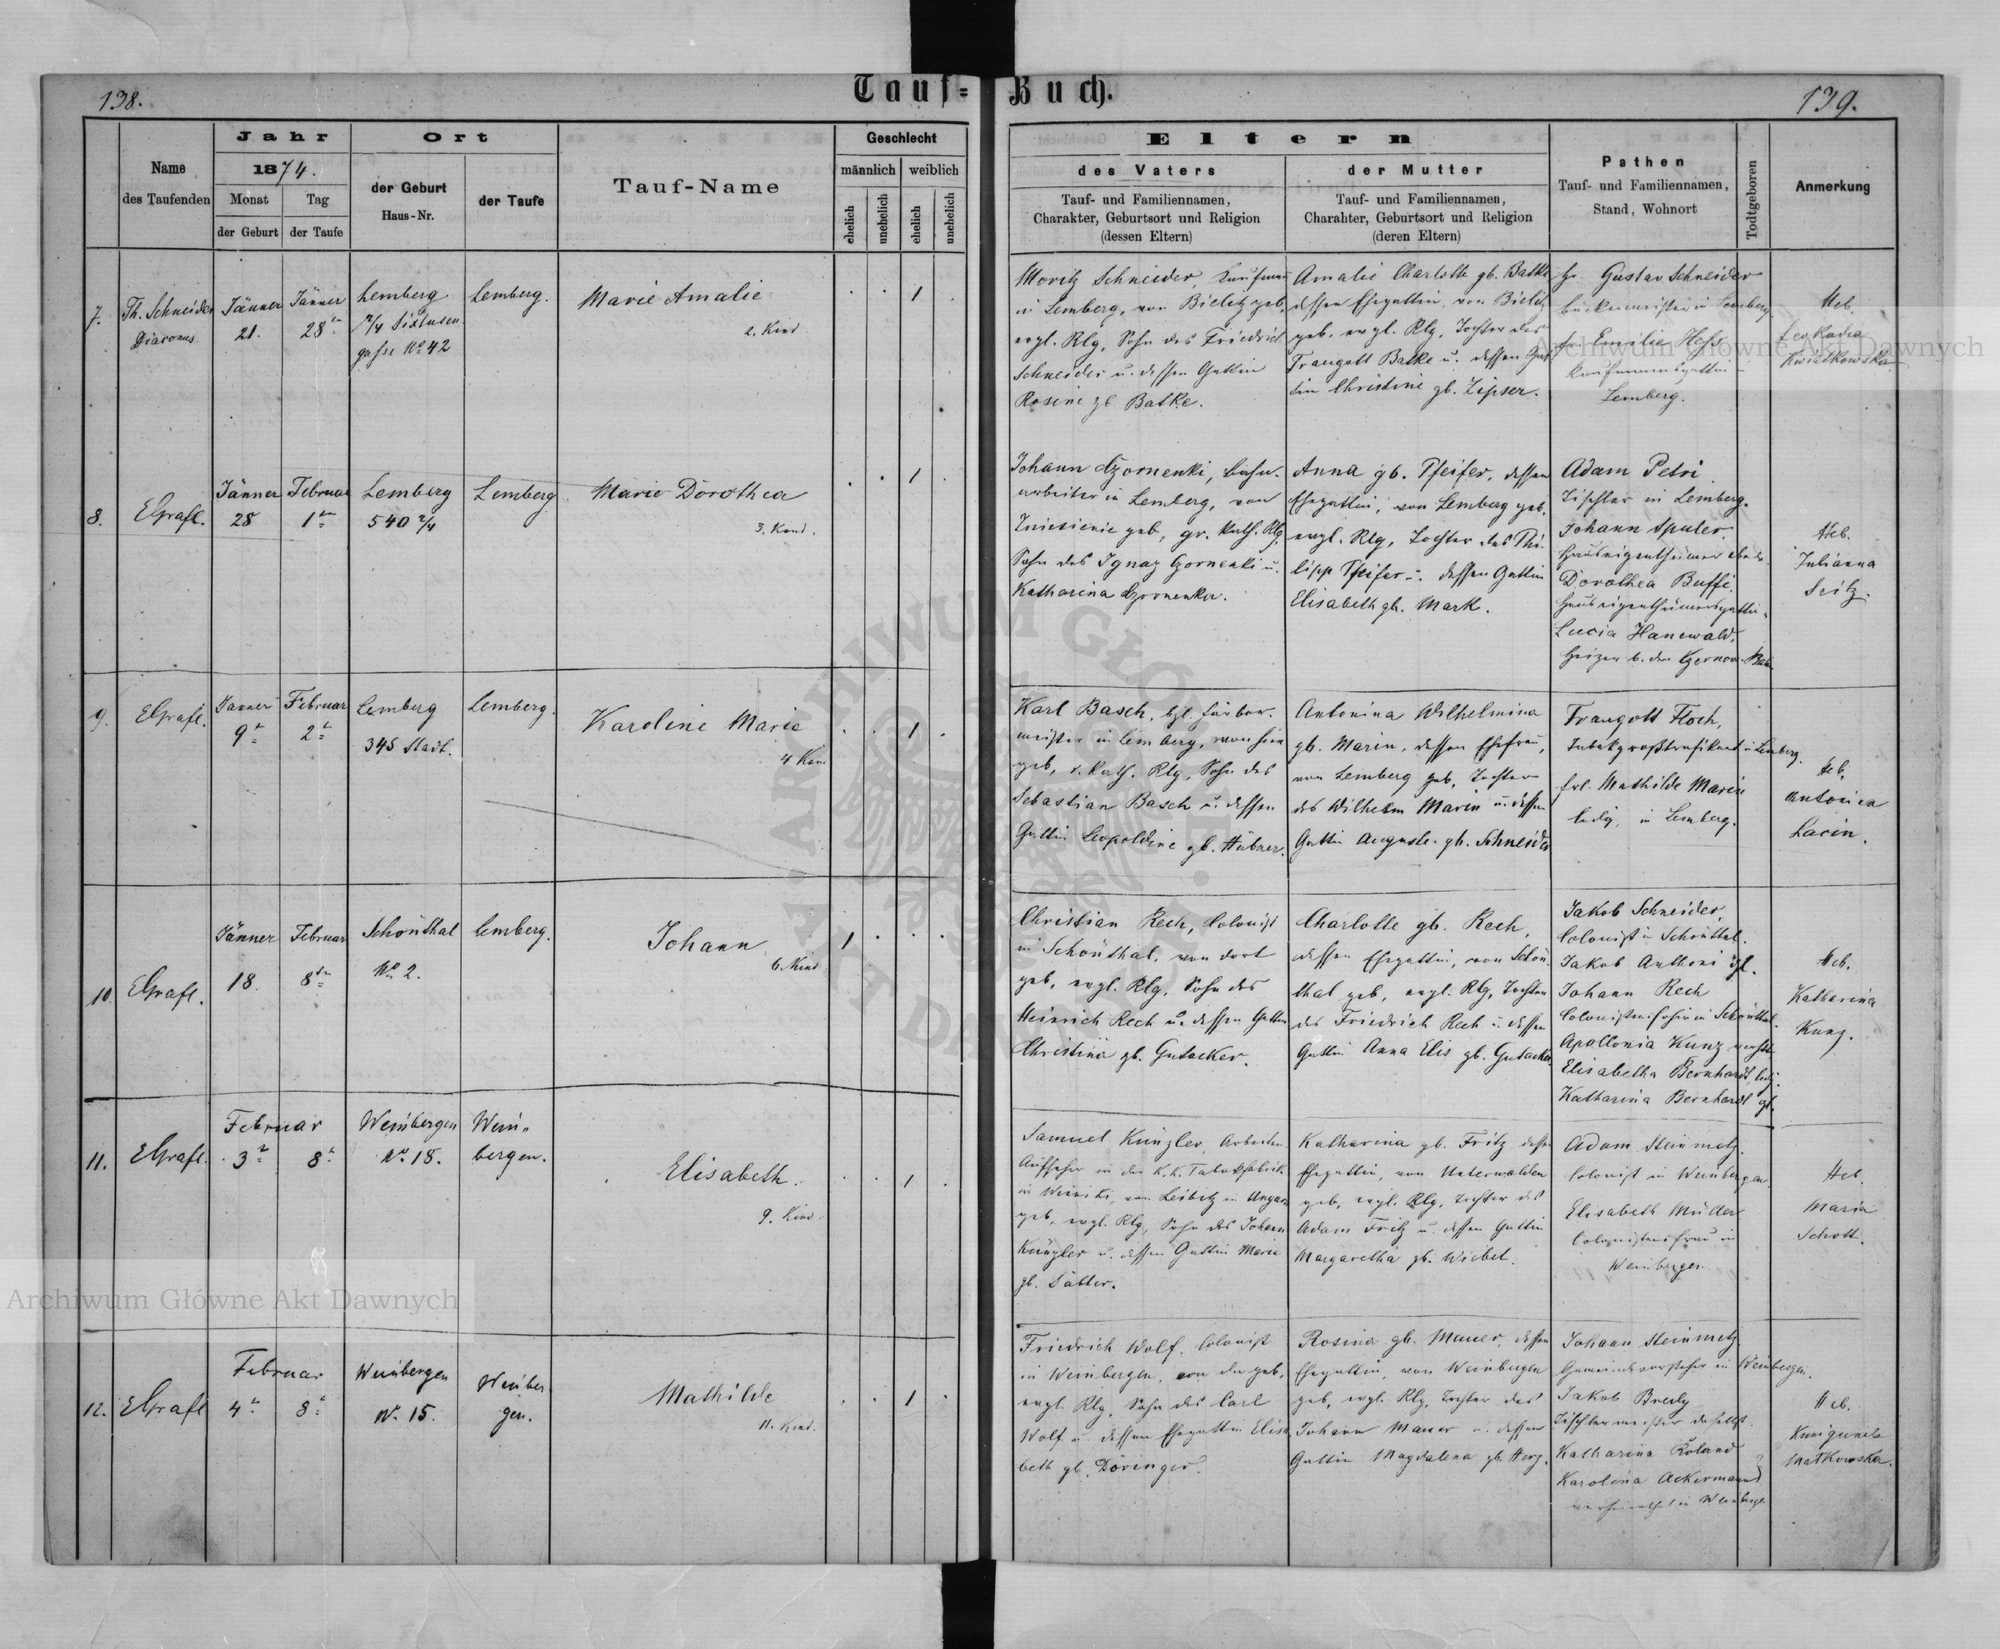 138.
Tauf=Buch.
139.
Name
des Taufenden
Jahr
1874.
Monat
der Geburt
Tag
der Taufe
Ort
der Geburt
Haus-Nr.
der Taufe
Tauf-Name
Geschlecht
männlich
weiblich
ehelich
unehelich
ehelich
unehelich
Eltern
des Vaters
Tauf- und Familiennamen,
Charakter, Geburtsort und Religion
(dessen Eltern)
der Mutter
Tauf- und Familiennamen,
Charahter, Geburtsort und Religion
(deren Eltern)
Pathen
Tauf- und Familiennamen,
Stand, Wohnort
Todtgeboren
Anmerkung
7.
Th. Schneider
Diaconus
Jänner
21.
Jänner
28
Lemberg
2/4 Sixtusen
gasse No 42
Lemberg.
Marie Amalie
2. Kind
1
Moritz Schneider, Kaufmann
in Lemberg, von Bielitz geb,
evgl. Rlg, Sohn des Friedrich
Schneider u. dessen Gattin
Rosine gb. Batke.
Amalie Charlotte gb. Batke
dessen Ehegattin von Bielitz
geb. evgl. Rlg, Tochter des
Traugott Batke u. dessen Gat
tin Christine gb. Zipser.
Hr. Gustav Schneider
Bäckermeister in Lemberg
Fr. Emilie Hess
Kaufmannsgattin
Lemberg.
Heb.
Leokadia
Kwiatkowska
8.
EGrafl.
Jänner
28
Februar
1
Lemberg
540 2/4
Lemberg
Marie Dorothea
3. Kind.
1
Johann Czornenki, Bahn-
arbeiter in Lemberg, von
Zniesienie geb, gr. kath. Rlg,
Sohn des Ignaz Czornenki u.
Katharina Czornenka.
Anna gb. Pfeifer, dessen
Ehegattin, von Lemberg geb,
evgl. Rlg, Tochter des Phi-
lipp Pfeifer u. dessen Gattin
Elisabeth gb. Mark.
Adam Petri
Tischler in Lemberg.
Johann Spuler
Hauseigenthümer
Dorothea Buffi,
Hauseigenthümersgattin
Lucia Hanewald,
Heizer b. der Czernow. Bahn
Heb.
Julianna
Seitz.
9.
EGrafl.
Jänner
9
Februar
2
Lemberg
345 Stadt.
Lemberg.
Karoline Marie
4 Kind
1
Karl Basch, bgl. Färber-
meister in Lemberg, von hier
geb, r. kath. Rlg, Sohn des
Sebastian Basch u. dessen
Gattin Leopoldine gb. Hübner.
Antonina Wilhelmina
gb. Marin, dessen Ehefrau,
von Lemberg geb, Tochter
des Wilhelm Marin u. dessen
Gattin Auguste gb. Schneider
Traugott Floch,
Tabakgroßtrafikant in Lemberg.
Frl. Mathilde Marin
ledig, in Lemberg.
Heb.
Antonica
Lacin.
10.
EGrafl.
Jänner
18.
Februar
8
Schönthal
No 2.
Lemberg.
Johann
6. Kind
1
Christian Rech, Colonist
in Schönthal, von dort
geb, evgl. Rlg, Sohn des
Heinrich Rech u. dessen Gattin
Christina gb. Gutacker.
Charlotte gb. Rech,
dessen Ehegattin, von Schön-
thal geb, evgl. Rlg, Tochter
des Friedrich Rech u. dessen
Gattin Anna Elis gb. Gutacker.
Jakob Schneider,
Colonist in Schönthal.
Jakob Anthoni
Johann Rech
Colonistensohn in Schönthal.
Apallonia Kunz
Elisabetha Bernhardt ledig.
Katharina Bernhardt
Heb.
Katharina
Kunz.
11.
EGrafl.
Februar
3
8
Weinbergen
No 18.
Wein-
bergen.
Elisabeth.
9. Kind.
1
Samuel Künzler, Arbeiter
Aufseher in der K.K. Tabakfabrik
in Winniki, von Leibitz in Ungarn
geb, evgl. Rlg, Sohn des Johann
Künzler u. dessen Gattin Marie
gb. Sattler.
Katharina gb. Fritz dessen
Ehegattin, von Unterwalden
geb, evgl. Rlg, Tochter des
Adam Fritz u. dessen Gattin
Margaretha gb. Wiebel.
Adam Steinmetz.
Colonist in Weinbergen
Elisabeth Müller
Colonistensfrau in
Weinbergen
Heb.
Maria
Schott.
12.
EGrafl
Februar
4
8
Weinbergen
No. 15.
Weinber
gen.
Mathilde
11. Kind.
1
Friedrich Wolf, Colonist
in Weinbergen, von da geb,
evgl. Rlg, Sohn des Carl
Wolf u. dessen Ehegattin Elisa
beth gb. Döringer.
Rosina gb. Mauer, dessen
Ehegattin, von Weinbergen
geb, evgl. Rlg, Tochter des
Johann Mauer u. dessen
Gattin Magdalena gb. Herz.
Johann Steinmetz
Gemeindevorsteher in Weinbergen.
Jakob Bredy
Tischlermeister daselbst.
Katharina Roland
Karolina Ackermann
verheirathet in Weinbergen
Heb.
Kunigunda
Matkowska.
Archiwum Główne Akt Dawnych
Archiwum Główne Akt Dawnych